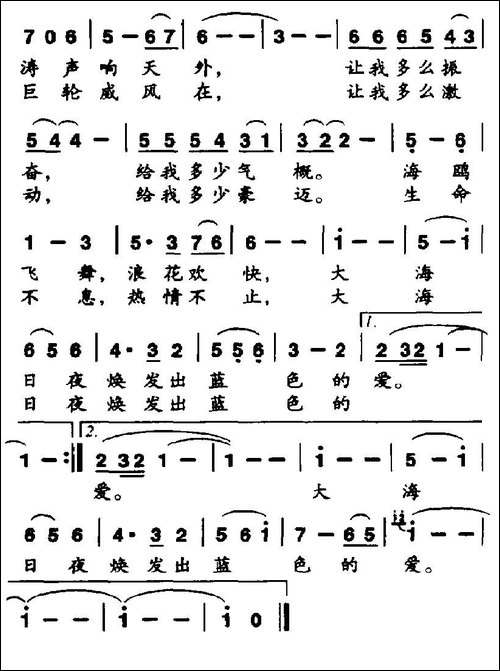 7 0 6 | 5 - 6 7 | 6 - - | 3 - - | 6 6 6 5 4 3 |
涛 声 响 天 外, 让 我 多 么 振
巨 轮 威 风 在, 让 我 多 么 激
5 4 4 - | 5 5 5 4 3 1 | 3 2 2 - | 5 - 6 |
奋, 给 我 多 少 气 概。 海 鸥
动, 给 我 多 少 豪 迈。 生 命
1 - 3 | 5· 3 7 6 | 6 - - | i - - | 5 - i |
飞 舞, 浪 花 欢 快, 大 海
不 息, 热 情 不 止, 大 海
1.
6 5 6 | 4· 3 2 | 5 5 6 | 3 - 2 | 2 3 2 1 - |
日 夜 焕 发 出 蓝 色 的 爱。
日 夜 焕 发 出 蓝 色 的
2.
1 - - :|| 2 3 2 1 - | 1 - - | i - - | 5 - i |
爱。 大 海
6 5 6 | 4· 3 2 | 5 6 i | 7 - 6 5 | i - - |
日 夜 焕 发 出 蓝 色 的 爱。
i - - | i - - | i 0 ||